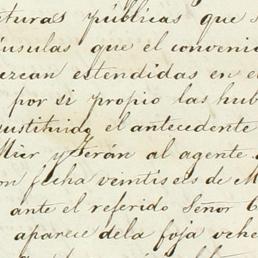 turas públicas que s
úsulas que el convenio
ezcan estendidas en el
por si propio las hub
sustituido el antecedente
Mier y Terán al agente
on fecha veintiseis de M
ante el referido Señor C
aparece dela foja